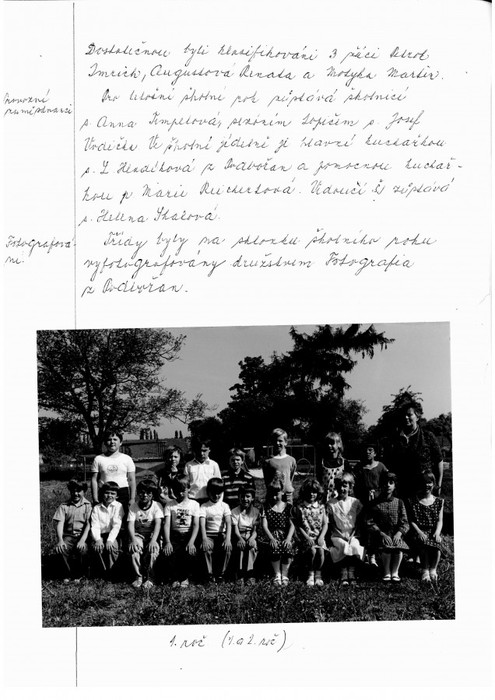 Dostatečnou byli klasifikováni 3 žáci
Imrich, Augustová Renata a Motyka Martin.
Provozní
zaměstnanci
Pro letošní školní rok zůstává školnicí
s. Anna Timplová, sezóním topičem s. Josef
Vodička. Ve školní jídelně je hlavní kuchařkou
s. L. Hendíková z Podbořan a pomocnou kuchař-
kou p. Marie Reichertová. Vedoucí ŠJ zůstává
s. Helena Skalová.
Fotografová-
ní.
Třídy byly na sklonku školního roku
vyfotografovány družstvem Fotografia
z Podbořan.
1. roč (1. a 2. roč)